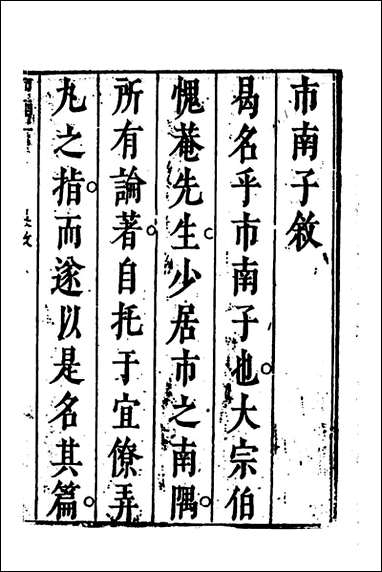 市南子敘
曷名乎市南子也大宗伯
愧菴先生少居市之南隅
所有論著自托于宜僚弄
丸之指而遂以是名其篇